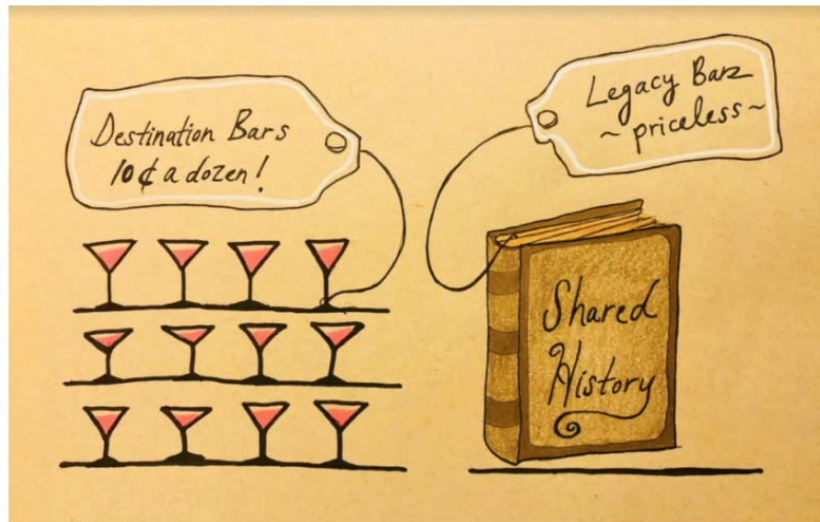 Destination Bars
10¢ a dozen!
Legacy Bar
~ priceless ~
Shared
History